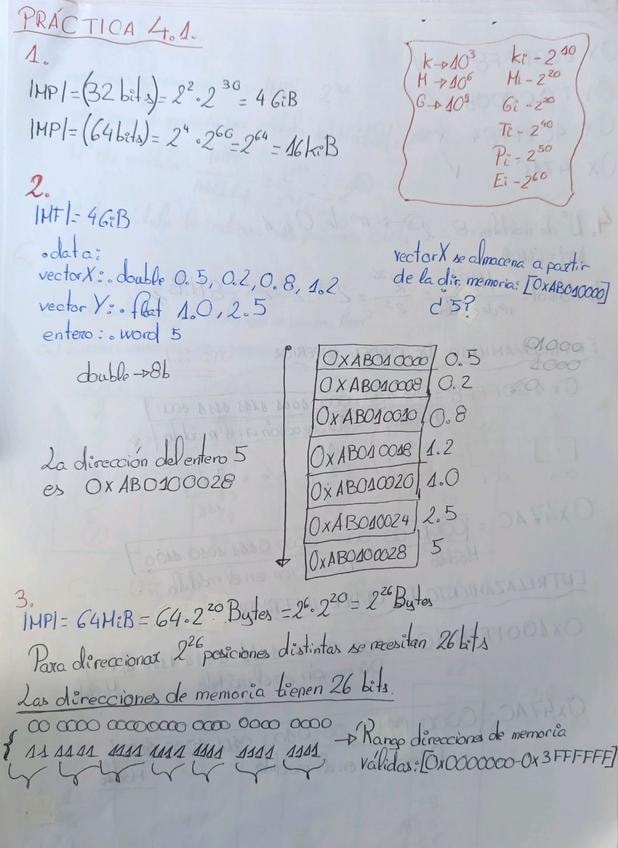 PRÁCTICA 4.1.
1.
|MP|=(32 bits)= 2²·2³⁰ = 4GiB
|MP|=(64bits)= 2⁴·2⁶⁰=2⁶⁴=16KiB
K→10³ Ki-2¹⁰
M→10⁶ Mi-2²⁰
G→10⁹ Gi-2³⁰
Ti-2⁴⁰
Pi-2⁵⁰
Ei-2⁶⁰
2.
|MP|=4GiB
.data:
vectorX:.double 0.5, 0.2, 0.8, 1.2
vector Y:.float 1.0, 2.5
entero:.word 5
vectorX se almacena a partir
de la dir. memoria: [0xAB010000]
¿5?
double→8b
0xAB010000 0.5
0xAB010008 0.2
0xAB010010 0.8
0xAB010018 1.2
0xAB010020 1.0
0xAB010024 2.5
0xAB0100028 5
La dirección del entero 5
es 0xAB0100028
3.
|MP|= 64MiB= 64·2²⁰ Bytes=2⁶·2²⁰= 2²⁶Bytes
Para direccionar 2²⁶ posiciones distintas se necesitan 26bits
Las direcciones de memoria tienen 26 bits.
00 0000 00000000 0000 0000 0000
11 1111 1111 1111 1111 1111 1111 → Rango direcciones de memoria
válidas:[0x0000000-0x3FFFFFF]